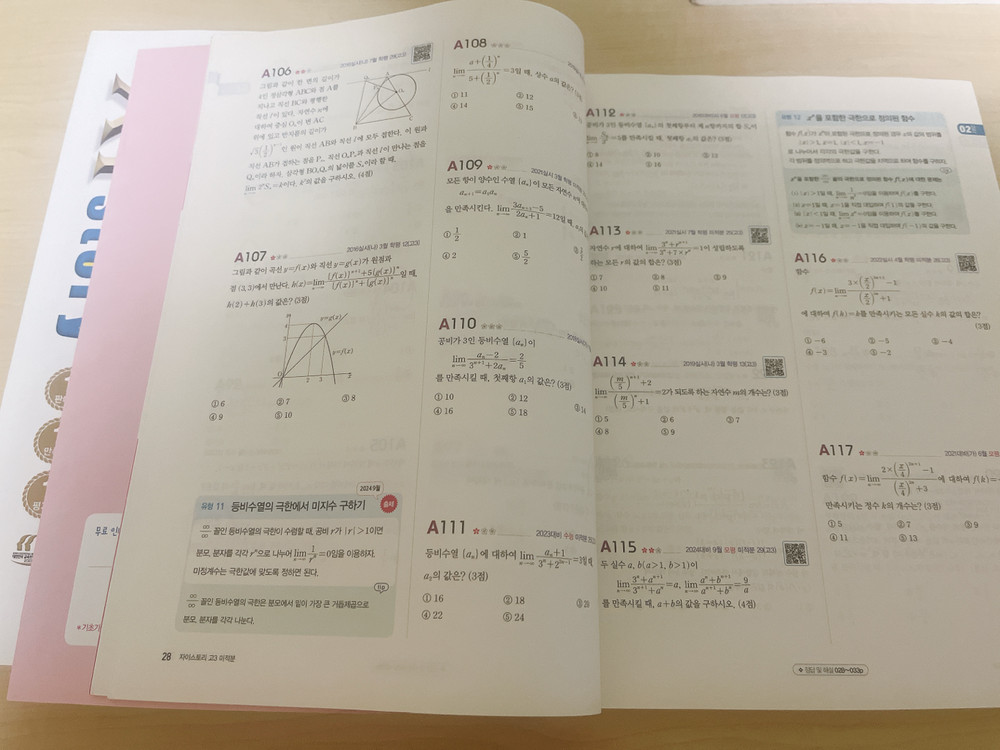 A106
그림과 같이 한 변의 길이가
4인 정삼각형 ABC와 점 A를
지나고 직선 BC와 평행한
직선 l이 있다. 자연수 n에
대하여 중심 Oₙ이 변 AC
위에 있고 반지름의 길이가
√3(1/2)ⁿ⁻¹인 원이 직선 AB와 직선 l에 모두 접한다. 이 원과
직선 AB가 접하는 점을 Pₙ, 직선 OₙPₙ과 직선 l이 만나는 점을
Qₙ이라 하자. 삼각형 BOₙQₙ의 넓이를 Sₙ이라 할 때,
lim 2ⁿSₙ=k이다. k²의 값을 구하시오. (4점)
A107
2016실시(나) 3월 학평 12(고3)
그림과 같이 곡선 y=f(x)와 직선 y=g(x)가 원점과
점 (3, 3)에서 만난다. h(x)=lim {f(x)}ⁿ⁺¹+5{g(x)}ⁿ / {f(x)}ⁿ+{g(x)}ⁿ일 때,
h(2)+h(3)의 값은? (3점)
y=g(x)
y=f(x)
① 6 ② 7 ③ 8
④ 9 ⑤ 10
2024 9월
유형 11 등비수열의 극한에서 미지수 구하기
출제
∞/∞ 꼴인 등비수열의 극한이 수렴할 때, 공비 r가 |r|>1이면
분모, 분자를 각각 rⁿ으로 나누어 lim 1/rⁿ=0임을 이용하자.
미정계수는 극한값에 맞도록 정하면 된다.
tip
∞/∞ 꼴인 등비수열의 극한은 분모에서 밑이 가장 큰 거듭제곱으로
분모, 분자를 각각 나눈다.
28 자이스토리 고3 미적분
A108
lim a+(1/4)ⁿ / 5+(1/2)ⁿ =3일 때, 상수 a의 값은?
① 11 ② 12
④ 14 ⑤ 15
A109
2021실시 3월 학평 미적분
모든 항이 양수인 수열 {aₙ}이 모든 자연수 n에
aₙ₊₁=a₁aₙ
을 만족시킨다. lim 3aₙ₊₃−5 / 2aₙ+1 =12일 때,
① 1/2 ② 1
④ 2 ⑤ 5/2
A110
공비가 3인 등비수열 {aₙ}이
lim aₙ−2 / 3ⁿ⁺¹+2aₙ = 2/5
를 만족시킬 때, 첫째항 a₁의 값은? (3점)
① 10 ② 12 ③ 14
④ 16 ⑤ 18
A111
2023대비 수능 미적분
등비수열 {aₙ}에 대하여 lim aₙ+1 / 3ⁿ+2²ⁿ⁻¹ =3일 때,
a₂의 값은? (3점)
① 16 ② 18 ③ 20
④ 22 ⑤ 24
A112
① 8 ② 10 ③ 12
④ 14 ⑤ 16
A113
자연수 r에 대하여 lim 3ⁿ+rⁿ⁺¹ / 3ⁿ+7×rⁿ =1이 성립하도록
하는 모든 r의 값의 합은? (3점)
① 7 ② 8 ③ 9
④ 10 ⑤ 11
A114
2019실시(나) 3월 학평 13(고3)
lim (m/5)ⁿ⁺¹+2 / (m/5)ⁿ+1 =2가 되도록 하는 자연수 m의 개수는? (3점)
① 5 ② 6 ③ 7
④ 8 ⑤ 9
A115
2024대비 9월 모평 미적분 29(고3)
두 실수 a, b(a>1, b>1)이
lim 3ⁿ+aⁿ⁺¹ / 3ⁿ⁺¹+aⁿ =a, lim aⁿ+bⁿ⁺¹ / aⁿ⁺¹+bⁿ = 9/a
를 만족시킬 때, a+b의 값을 구하시오. (4점)
유형 12 xⁿ을 포함한 극한으로 정의된 함수
02
A116
함수
f(x)=lim 3×(x/2)²ⁿ⁺¹−1 / (x/2)²ⁿ+1
에 대하여 f(k)=k를 만족시키는 모든 실수 k의 값의 합은?
(3점)
① −6 ② −5 ③ −4
④ −3 ⑤ −2
A117
2021대비(가) 6월 모평
함수 f(x)=lim 2×(x/4)²ⁿ⁺¹−1 / (x/4)²ⁿ+3 에 대하여 f(k)=
만족시키는 정수 k의 개수는? (3점)
① 5 ② 7 ③ 9
④ 11 ⑤ 13
정답 및 해설 028~033p
무료 인